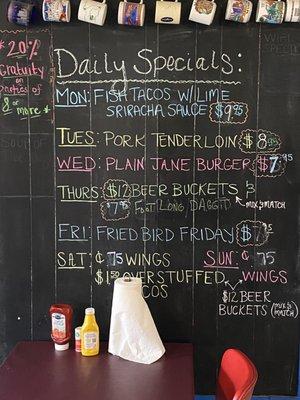 * 20%
Gratuity
on
parties of
8 or
more *
Daily Specials:
MON: FISH TACOS W/ LIME
SRIRACHA SAUCE $9.95
TUES: PORK TENDERLOIN $8.95
WED: PLAIN JANE BURGER $7.95
THURS: $12 BEER BUCKETS &
$7.95 FOOT LONG DAGGIT MIX & MATCH
FRI: FRIED BIRD FRIDAY
SAT: ¢75 WINGS
$1.50 OVERSTUFFED
TACOS
SUN: ¢75
WINGS
$12 BEER
BUCKETS (MIX & MATCH)